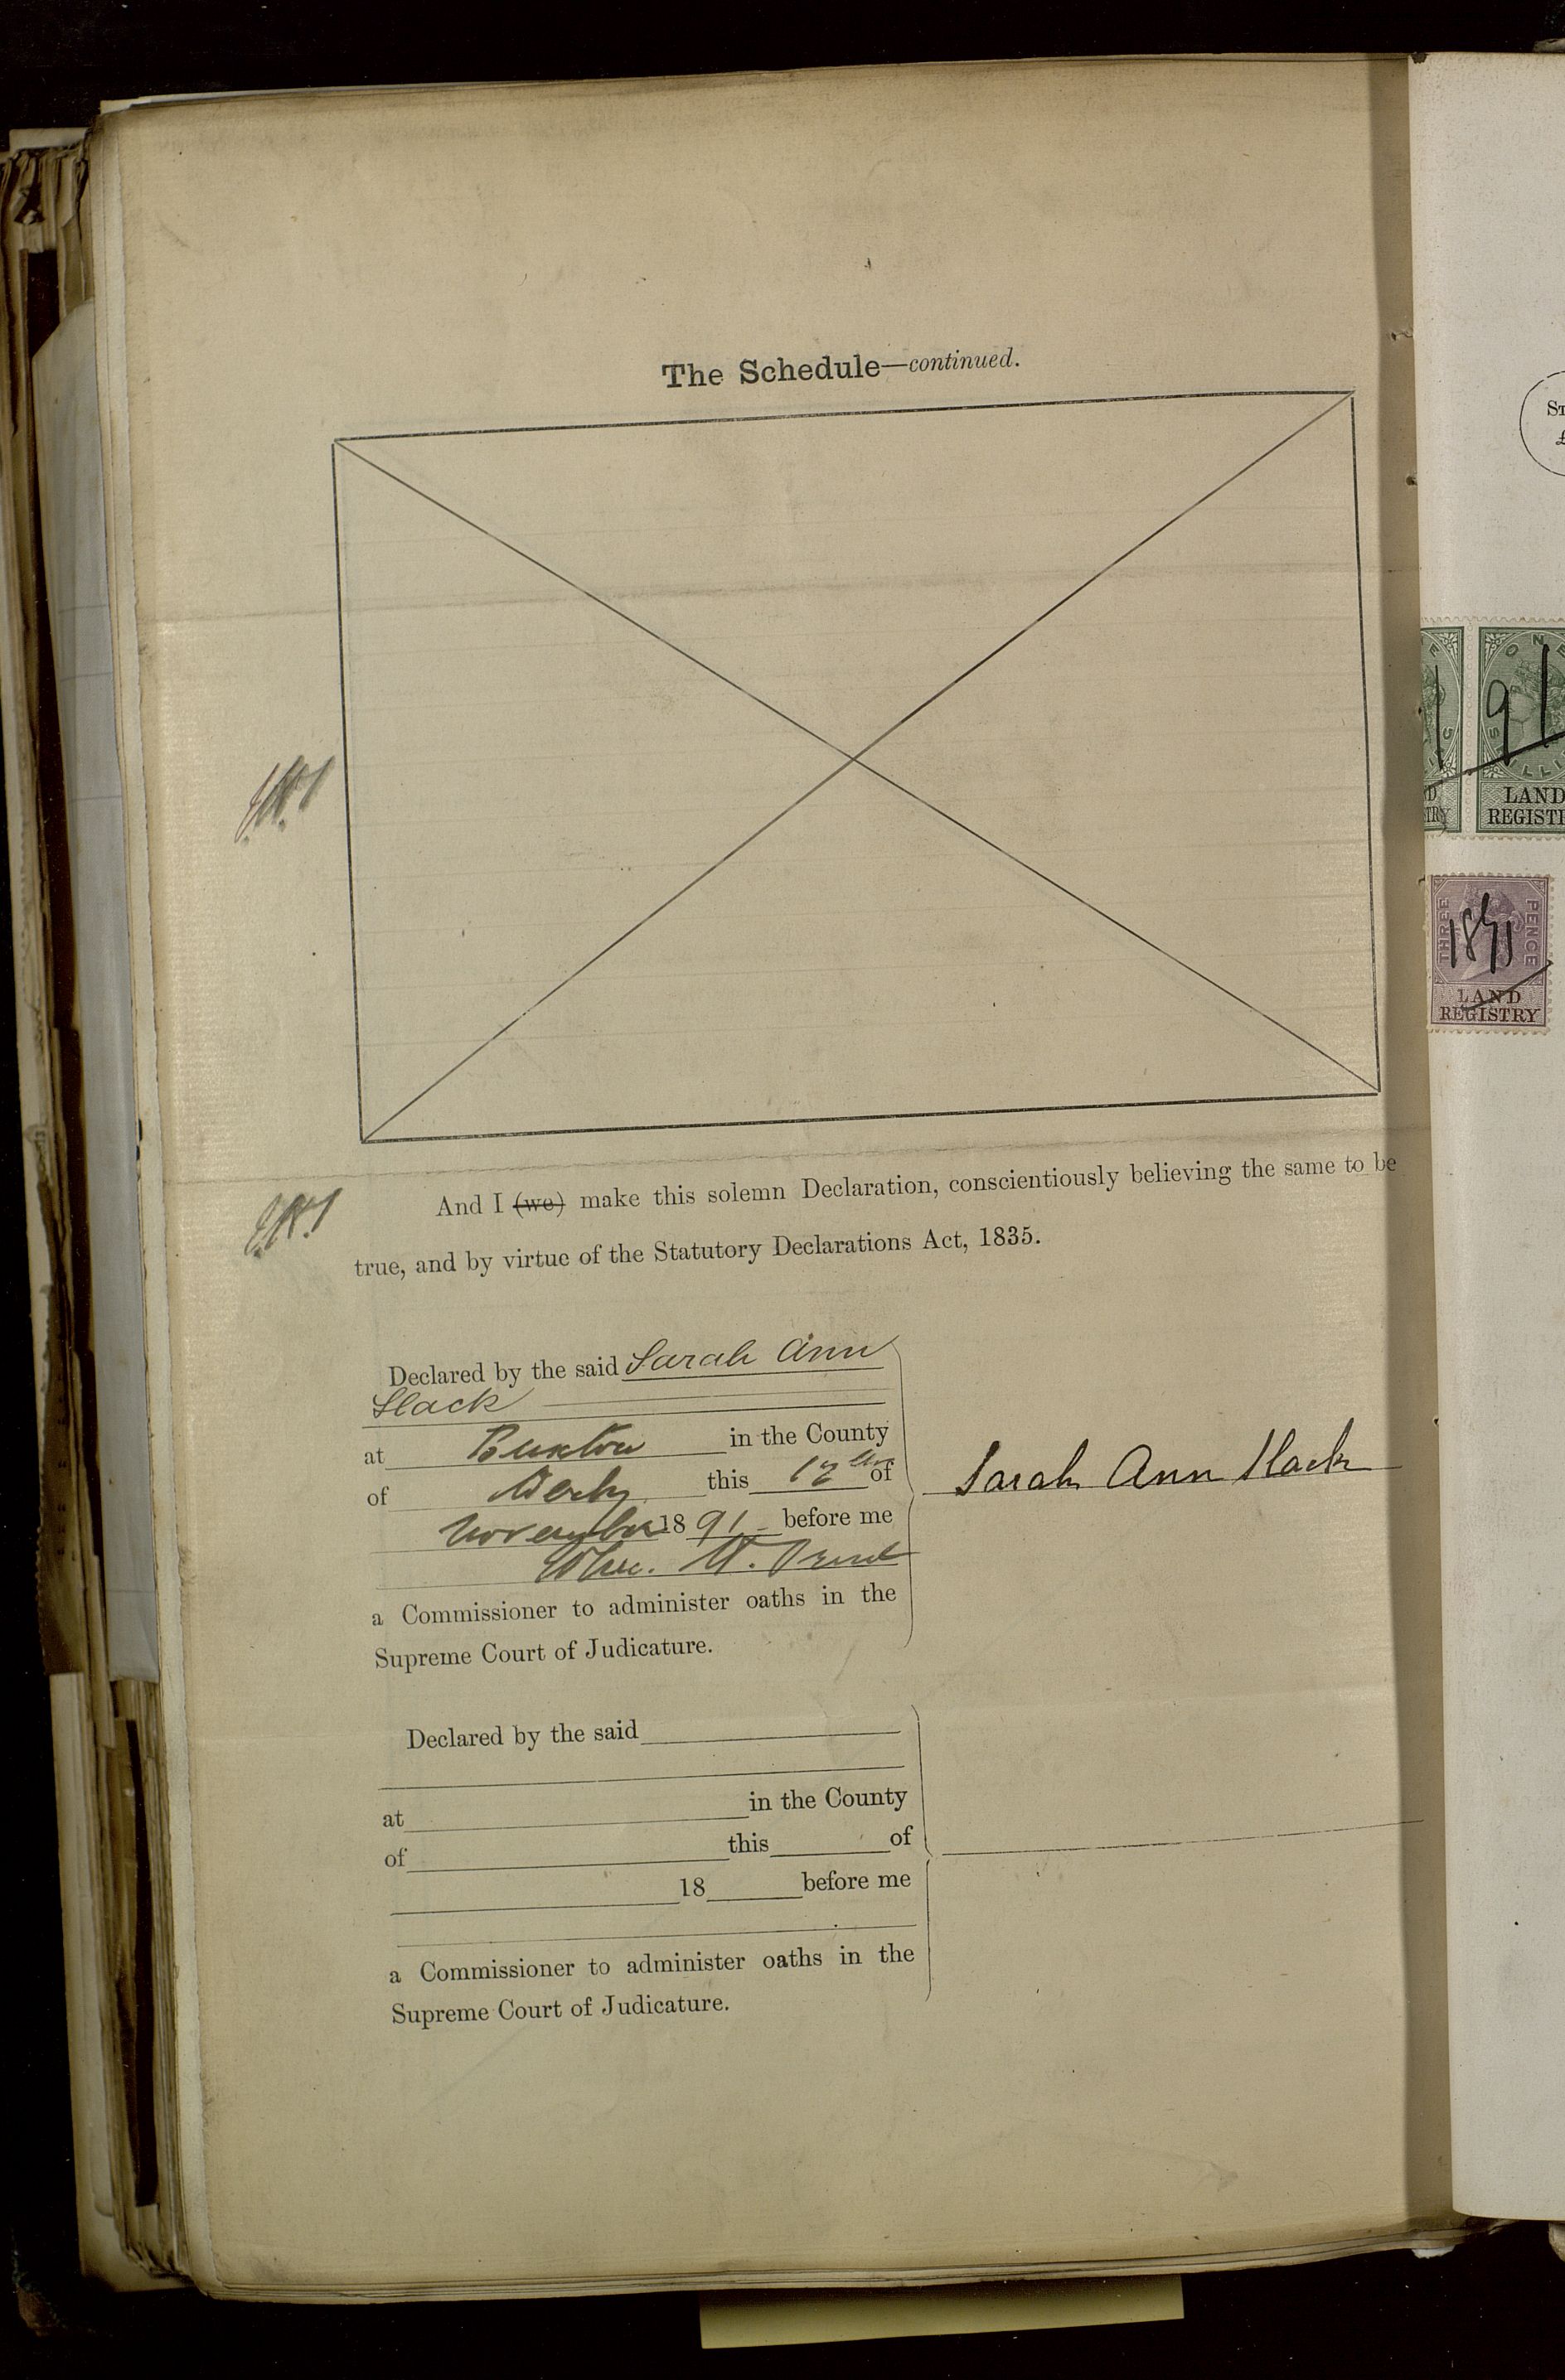 The Schedule—continued.
And I (we) make this solemn Declaration, conscientiously believing the same to be
true, and by virtue of the Statutory Declarations Act, 1835.
Declared by the said Sarah Ann
Slack
at Buxton in the County
of Derby this 12th of
November 1891 before me
a Commissioner to administer oaths in the
Supreme Court of Judicature.
Sarah Ann Slack
Declared by the said
at in the County
of this of
18 before me
a Commissioner to administer oaths in the
Supreme Court of Judicature.
91
LAND
REGIST
THREE PENCE
1891
LAND
REGISTRY